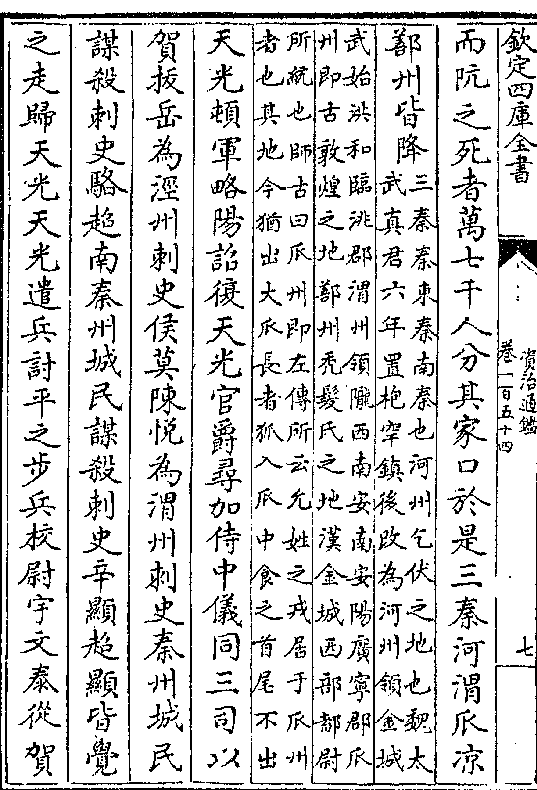 欽定四庫全書
資治通鑑
卷一百五十四
七
而阬之死者萬七千人分其家口於是三秦河渭瓜凉
鄯州皆降三秦秦東秦南秦也河州乞伏之地也魏太
武真君六年置枹罕鎮後改為河州領金城
武始洪和臨洮郡渭州領隴西南安南安陽廣寧郡瓜
州即古敦煌之地鄯州秃髮氏之地漢金城西部都尉
所統也師古曰瓜州即左傳所云允姓之戎居于瓜州
者也其地今猶出大瓜長者狐入瓜中食之首尾不出
天光頓軍略陽詔復天光官爵尋加侍中儀同三司以
賀拔岳為涇州刺史侯莫陳悅為渭州刺史秦州城民
謀殺刺史駱超南秦州城民謀殺刺史辛顯超顯皆覺
之走歸天光天光遣兵討平之步兵校尉宇文泰從賀